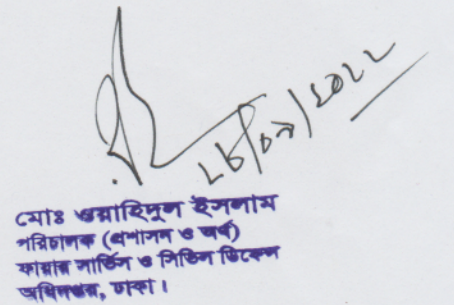 ২৮/০৯/২০২২
মোঃ ওয়াহিদুল ইসলাম
পরিচালক (প্রশাসন ও অর্থ)
ফায়ার সার্ভিস ও সিভিল ডিফেন্স
অধিদপ্তর, ঢাকা।